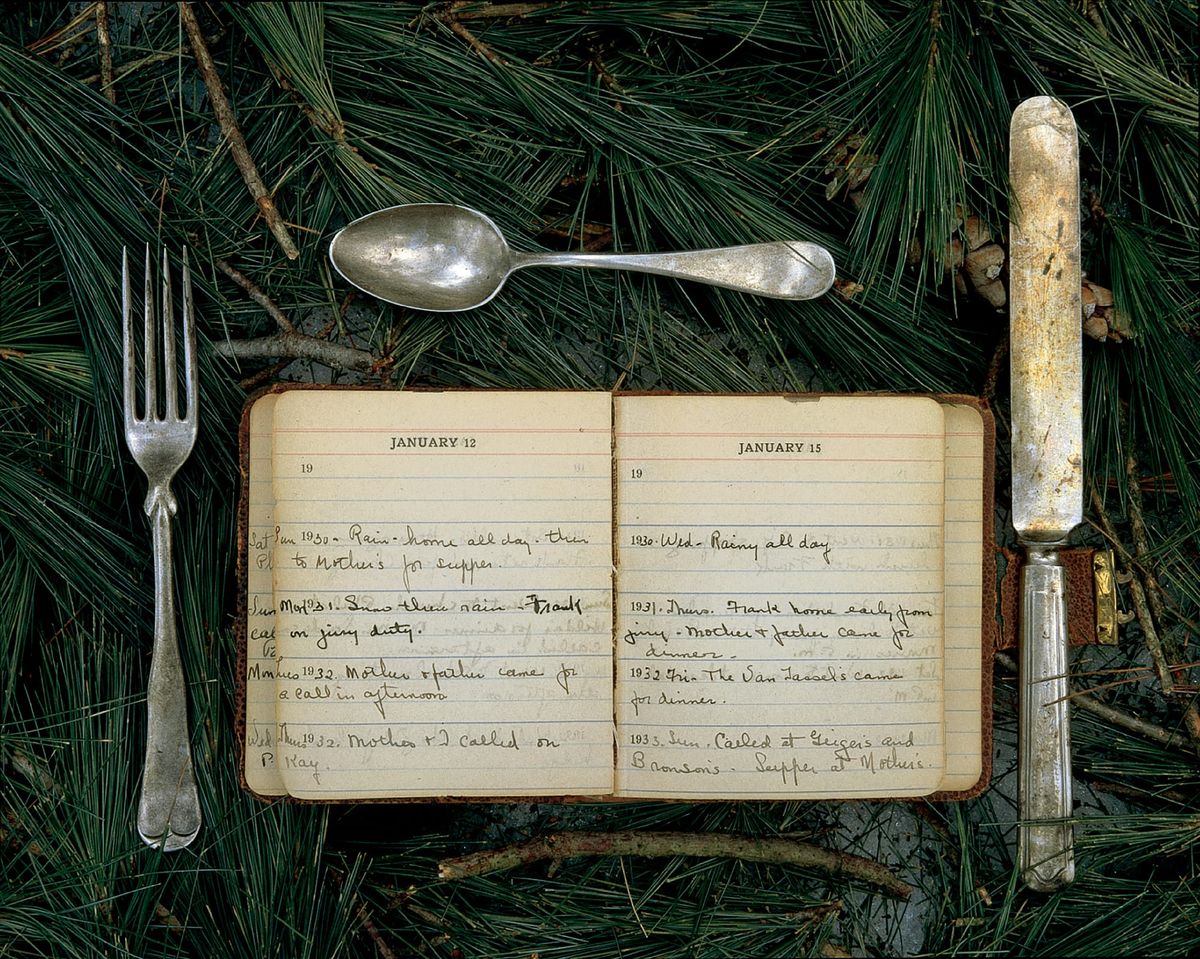 JANUARY 12
19
Sun 1930 - Rain - home all day - then
to Mother's for supper.
Mon 1931. Snow then rain - Frank
on jury duty.
Tues 1932. Mother & father came for
a call in afternoon
Thurs 1932. Mother & I called on
Kay.
Sat
Pl
Sun
cal
Mon
Wed
P
JANUARY 15
19
1930. Wed - Rainy all day
1931. Thurs. Frank home early from
jury - Mother & father came for
dinner -
1932 Fri - The Van Tassel's came
for dinner.
1933. Sun. Called at Geiger's and
Bronson's. Supper at Mother's.